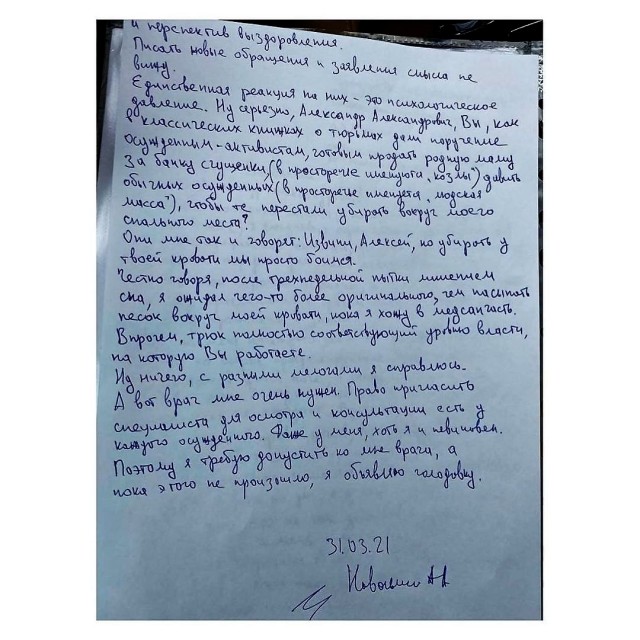 и перспектив выздоровления.
Писать новые обращения и заявления смысла не
вижу.
Единственная реакция на них - это психологическое
давление. Ну серьезно, Александр Александрович, Вы, как
в классических книжках о тюрьмах дали поручение
осужденным-активистам, готовым продать родную маму
за банку сгущенки, (в просторечье именуются „козлы“) давить
обычных осужденных (в просторечье именуется „людская
масса“), чтобы те перестали убирать вокруг моего
спального места?
Они мне так и говорят: Извини, Алексей, но убирать у
твоей кровати мы просто боимся.
Честно говоря, после трехнедельной пытки лишением
сна, я ожидал чего-то более оригинального, чем насыпать
песок вокруг моей кровати, пока я хожу в медсанчасть.
Впрочем, трюк полностью соответствующий уровню власти,
на которую Вы работаете.
Ну ничего, с разными мелочами я справлюсь.
А вот врач мне очень нужен. Право пригласить
специалиста для осмотра и консультации есть у
каждого осужденного. Даже у меня, хоть я и невиновен.
Поэтому я требую допустить ко мне врача, а
пока этого не произошло, я объявляю голодовку.
31.03.21
Навальный АА